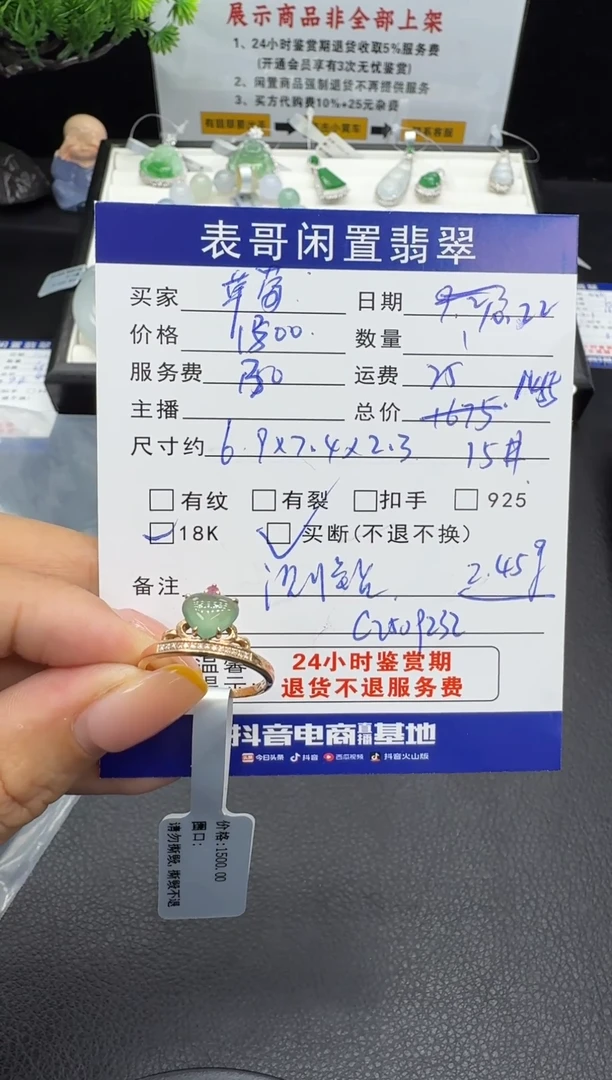 展示商品非全部上架
1、24小时鉴赏期退货收取5%服务费
(开通会员享有3次无忧鉴赏)
2、闲置商品强制退货不再提供服务
3、买方代购费10%+25元杂费
表哥闲置翡翠
买家 草莓 日期
价格 1500. 数量 1
服务费 运费 25
主播 总价 1675.
尺寸约 6.9x7.4x2.3 15#
□有纹 □有裂 □扣手 □925
□18K □买断(不退不换)
备注 2.45g
温馨 24小时鉴赏期
提示 退货不退服务费
抖音电商直播基地
今日头条 抖音 西瓜视频 抖音火山版
价格:1500.00
圈口:
请勿撕毁,撕毁不退